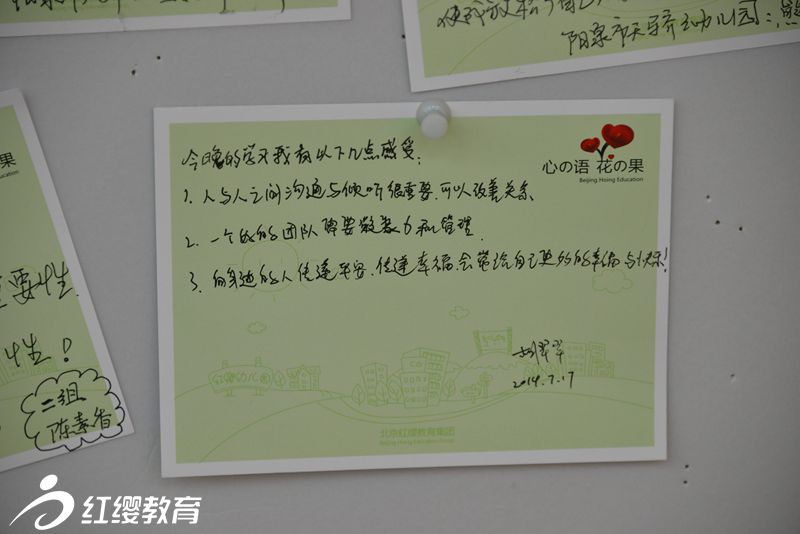 使
阳泉市天骄幼儿园：
心の语 花の果
Beijing Hoing Education
今晚的学习我有以下几点感受：
1. 人与人之间沟通与倾听很重要，可以改善关系
2. 一个好的团队需要凝聚力和管理
3. 向身边的人传递平安、传递幸福，会带给自己更多的幸福与快乐！
2014.7.17
红缨幼儿园
北京红缨教育集团
Beijing Hoing Education Group
果
Education
要性
性！
二组
陈素香
红缨教育